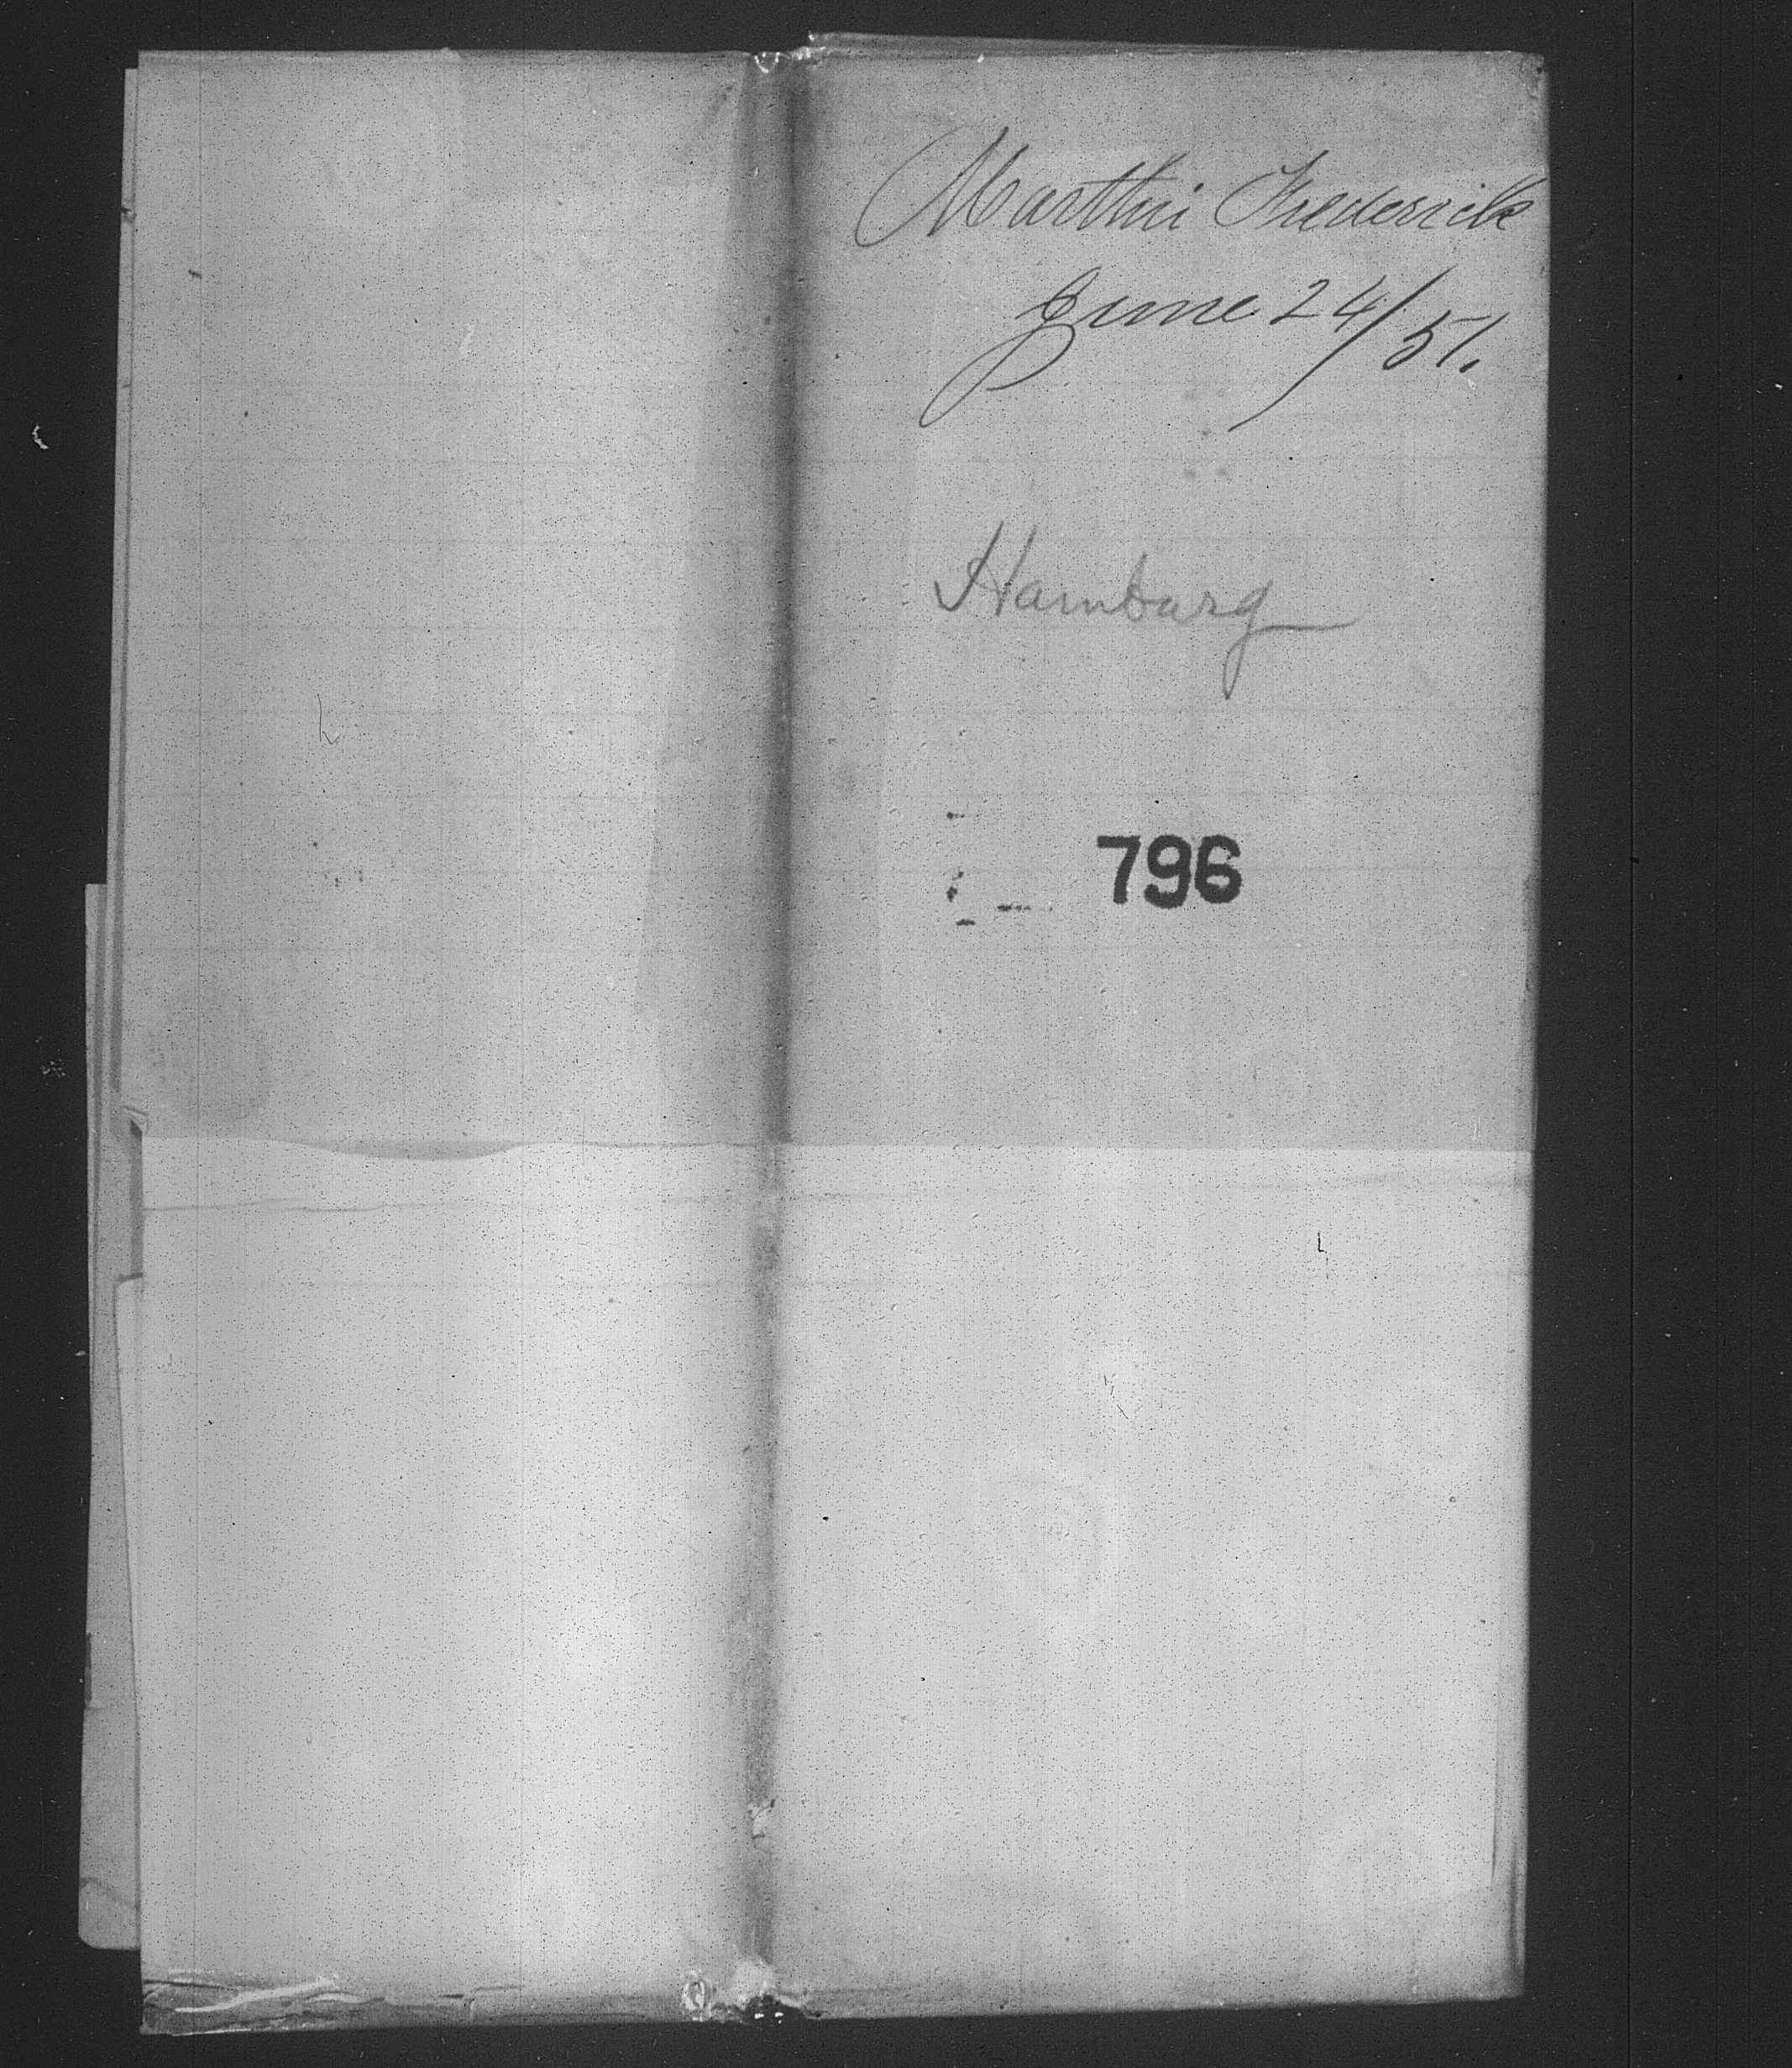 Marthin Frederick
June 24/51.
Hamburg
796